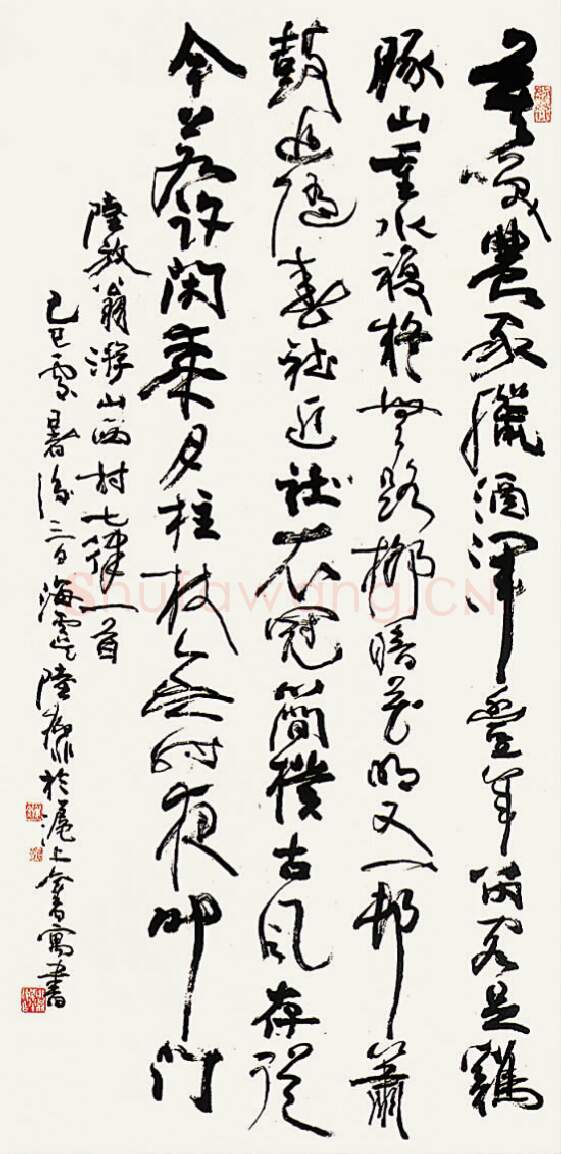 莫笑農家臘酒渾豐年留客足鷄
豚山重水複疑無路柳暗花明又一邨簫
鼓追隨春社近社衣冠簡樸古風存從
今若許閑乘月柱杖無時夜叩門
陸放翁游山西村七律一首
己巳處暑後三日海霆陸於滬上寓書
Shufawang.CN